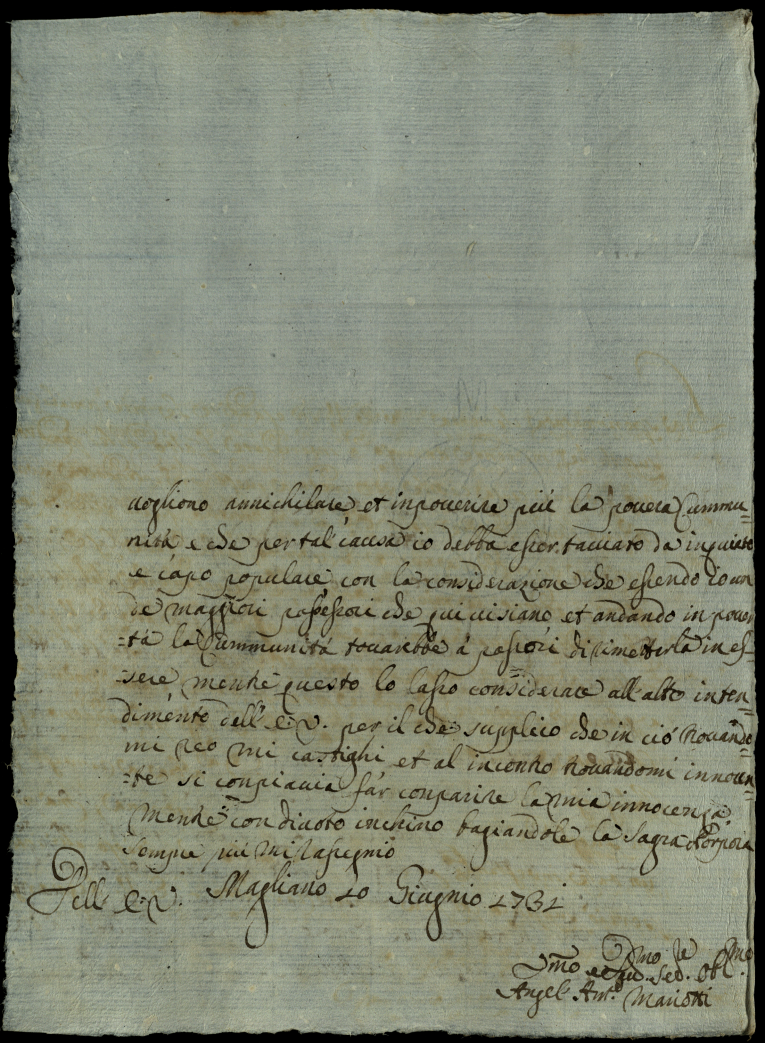 uogliono annichilare et inpouerire più la pouera Cummu=
nità e che per tal' causa io debba esser tacciato da inquieto
e capo populare con la considerazione che essendo io un
de maggiori possessori che qui uisiano et andando in pouer
=tà la Cummunità toccarebbe à possori di rimetterla in es=
=sere mentre questo lo lasso considerare all'alto inten=
dimento dell' E. V. per il che supplico che in ciò trouando
mi reo mi castighi et al incontro trouandomi innocen=
=te si conpiaccia far conparire la mia innocenza
mentre con diuoto inchino bagiandole la Sagra Porpora
sempre più mi rassegnio
Dell' E. V. Magliano 10 Giugnio 1731
Angel' Ant.º Mariotti